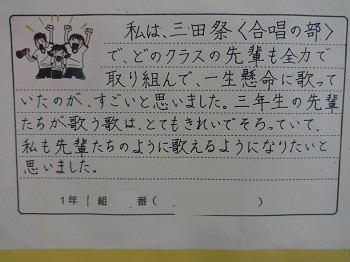 私は、三田祭〈合唱の部〉
で、どのクラスの先輩も全力で
取り組んで、一生懸命に歌って
いたのが、すごいと思いました。三年生の先輩
たちが歌う歌は、とてもきれいでそろっていて、
私も先輩たちのように歌えるようになりたいと
思いました。
1年1組 番( )